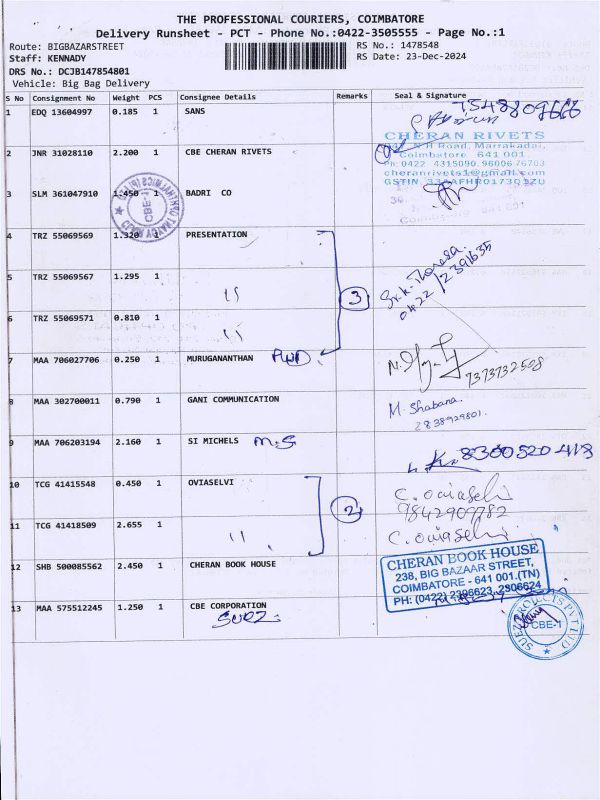 THE PROFESSIONAL COURIERS, COIMBATORE
Delivery Runsheet - PCT - Phone No.:0422-3505555 - Page No.:1
Route: BIGBAZARSTREET
RS No.: 1478548
Staff: KENNADY
RS Date: 23-Dec-2024
DRS No.: DCJB147854801
Vehicle: Big Bag Delivery
S No Consignment No Weight PCS Consignee Details Remarks Seal & Signature
1 EDQ 13604997 0.185 1 SANS
2 JNR 31028110 2.200 1 CBE CHERAN RIVETS
CHERAN RIVETS
N H Road, Marrakadai,
Coimbatore 641 001
Ph:0422 4315090 9600676703
cheranrivets1@gmail.com
3 SLM 361047910 1.450 1 BADRI CO
CBE-1
4 TRZ 55069569 1.320 PRESENTATION
5 TRZ 55069567 1.295 1 "
3
Sr. K. Theresa
0422/2391635
6 TRZ 55069571 0.810 1 "
7 MAA 706027706 0.250 1 MURUGANANTHAN PWD
7373732508
8 MAA 302700011 0.790 1 GANI COMMUNICATION
M. Shabana.
2838929801.
9 MAA 706203194 2.160 1 SI MICHELS M.S
8300520418
10 TCG 41415548 0.450 1 OVIASELVI
2
C. oviaselvi
9842909782
11 TCG 41418509 2.655 1 "
C. oviaselvi
12 SHB 500085562 2.450 1 CHERAN BOOK HOUSE
CHERAN BOOK HOUSE
238, BIG BAZAAR STREET,
COIMBATORE - 641 001.(TN)
PH: (0422) 2396623, 2306624
13 MAA 575512245 1.250 1 CBE CORPORATION
SUEZ
SUEZ PROJECTS PVT LTD
CBE-1